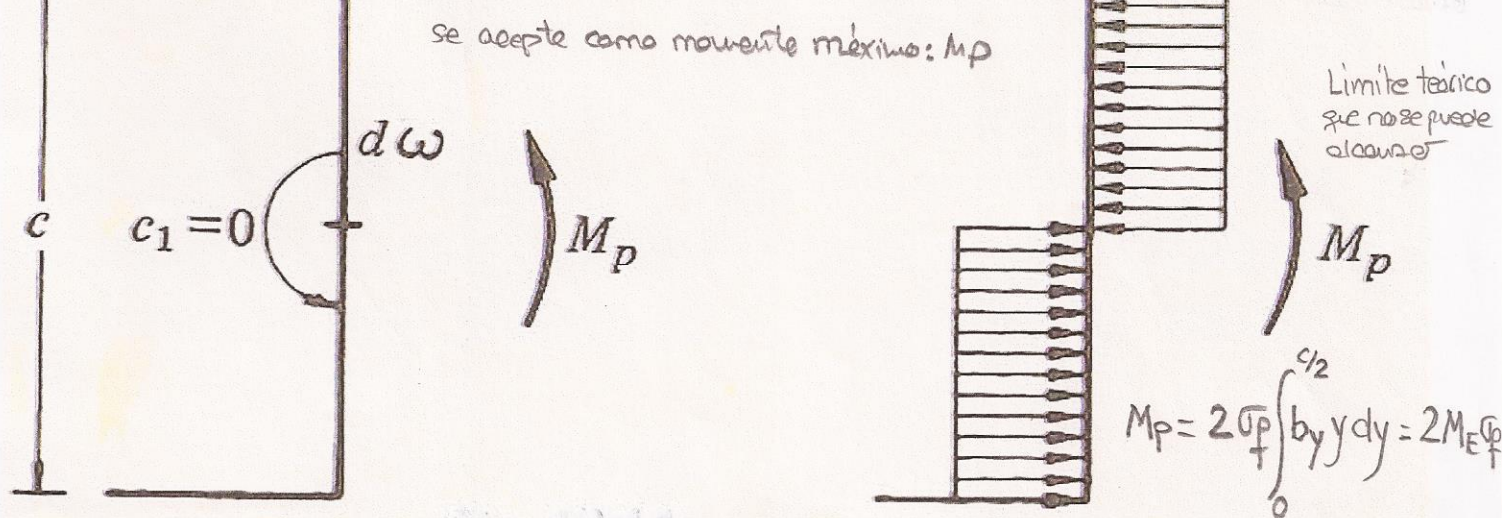 se acepte como momente máximo: Mp
Limite teórico
que no se puede
alcanzar
dω
c
c₁=0
Mₚ
Mₚ
c/2
Mp = 2σp∫by y dy = 2M_Eσp
f
f
0